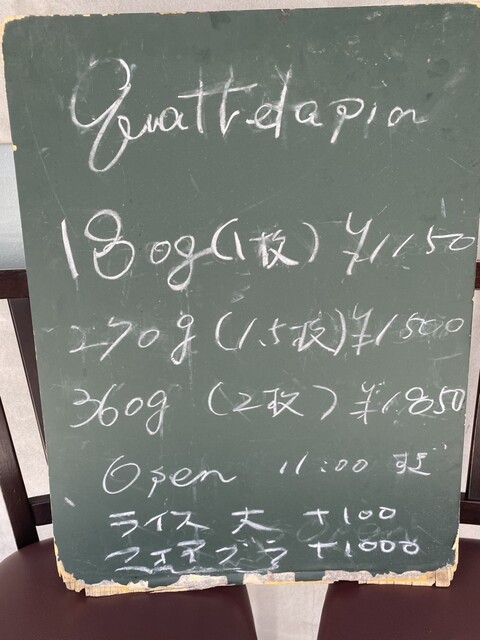 Quattelapin
180g (1枚) ¥1150
270g (1.5枚) ¥1500
360g (2枚) ¥1850
Open 11:00
ライス 大 +100
フォアグラ +1000